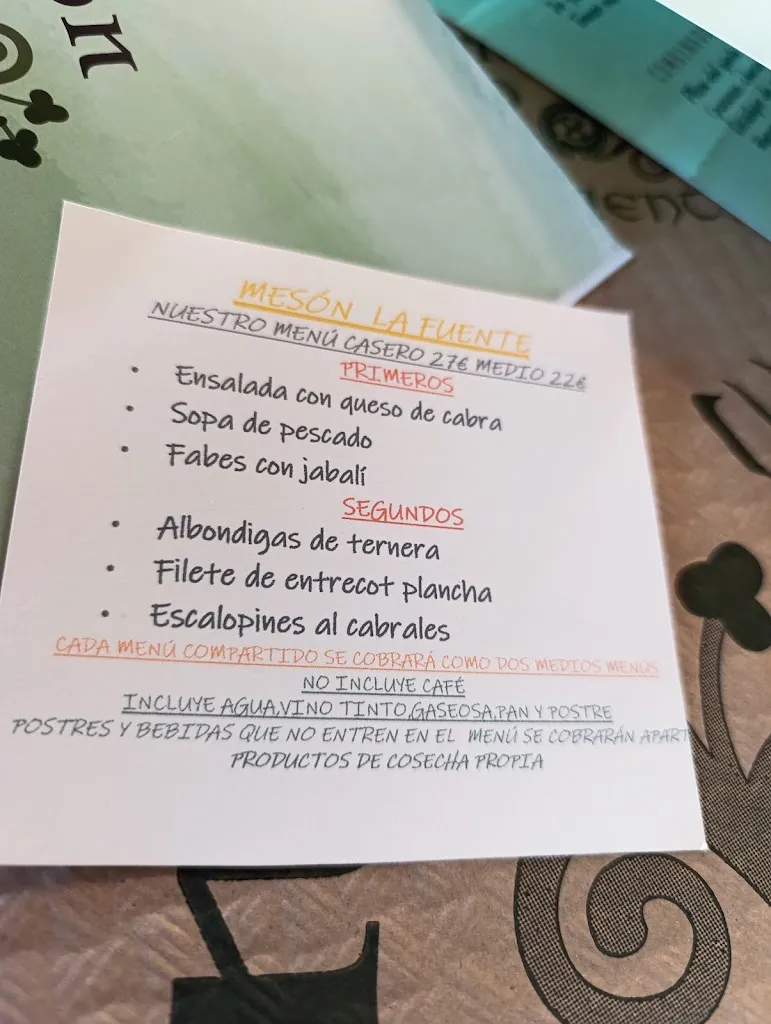 MESÓN LA FUENTE
NUESTRO MENÚ CASERO 27€ MEDIO 22€
PRIMEROS
• Ensalada con queso de cabra
• Sopa de pescado
• Fabes con jabalí
SEGUNDOS
• Albondigas de ternera
• Filete de entrecot plancha
• Escalopines al cabrales
CADA MENÚ COMPARTIDO SE COBRARÁ COMO DOS MEDIOS MENÚS
NO INCLUYE CAFÉ
INCLUYE AGUA,VINO TINTO,GASEOSA,PAN Y POSTRE
POSTRES Y BEBIDAS QUE NO ENTREN EN EL MENÚ SE COBRARÁN APART
PRODUCTOS DE COSECHA PROPIA